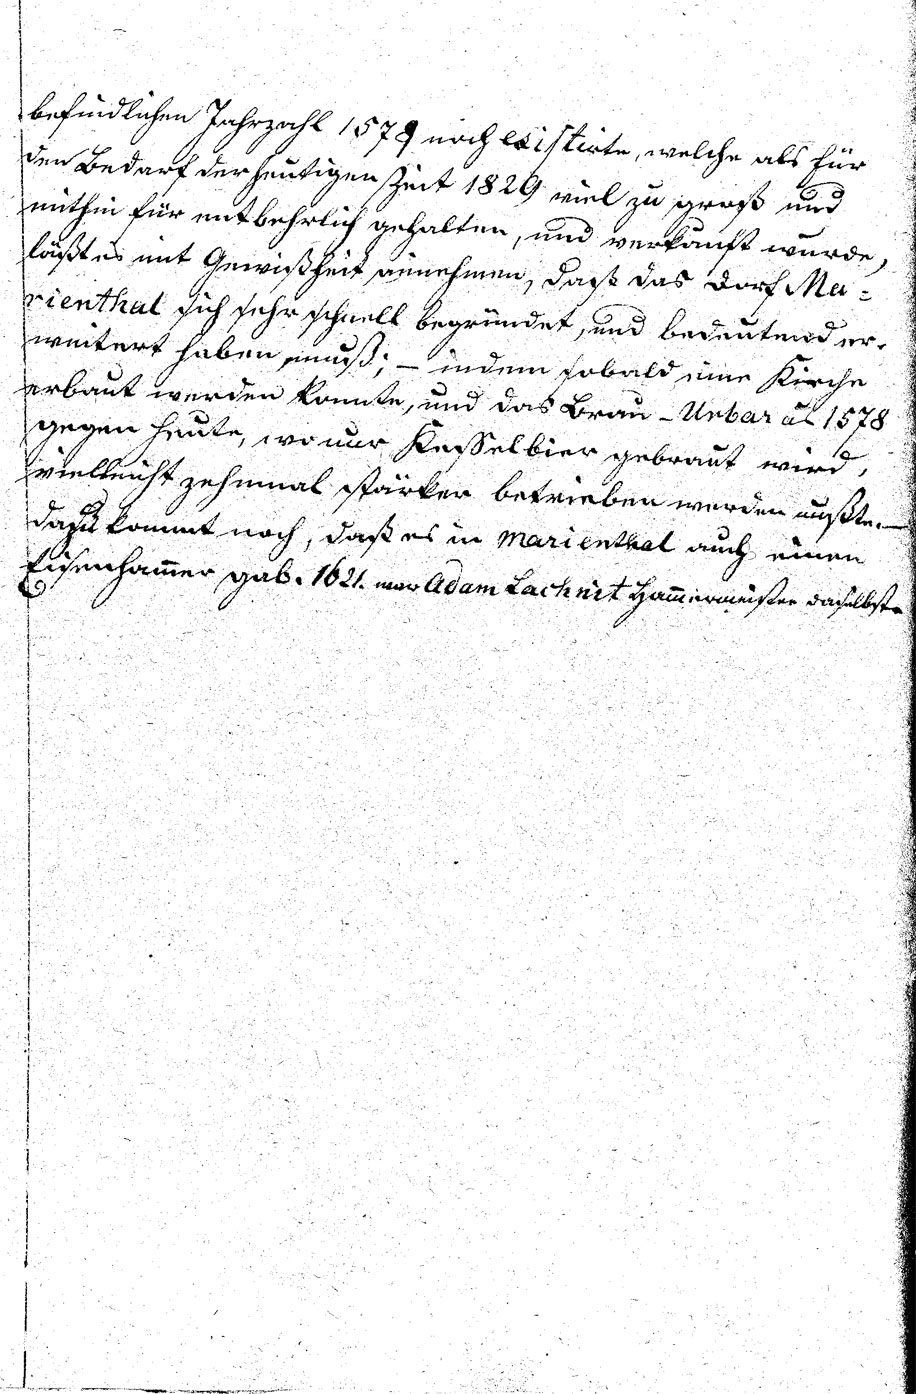 befindlichen Jahrzahl 1578 noch existirte, welche als für
den Bedarf der heutigen Zeit 1829 viel zu groß und
mithin für entbehrlich gehalten, und verkauft wurde,
läßt es mit Gewißheit annehmen, daß das Dorf Ma=
rienthal sich sehr schnell begründet, und bedeutend er-
weitert haben muß; – indem sobald eine Kirche
erbaut werden konnte, und das Brau-Urbar ao 1578
gegen heute, wo nur Kesselbier gebraut wird,
vielleicht zehnmal stärker betrieben werden mußte. –
dazu kommt noch, daß es in Marienthal auch einen
Eisenham̅er gab. 1621. war Adam Lachnit Ham̅ermeister daselbst.